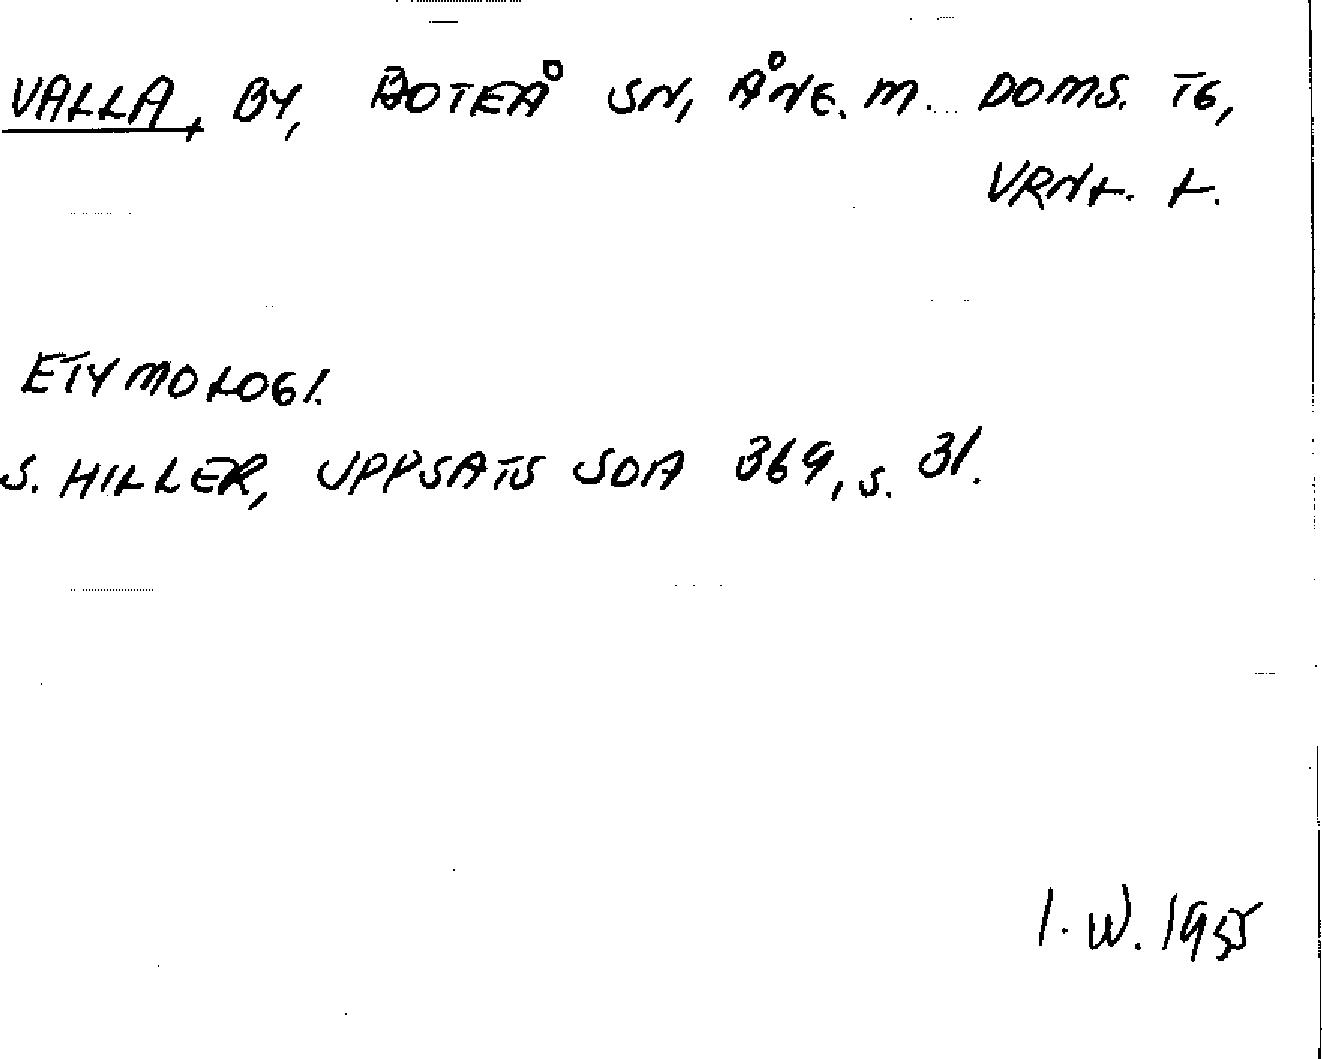 VALLA, BY, BOTEÅ SN, ÅNE. M. DOMS. TG,
VRNL. L.
ETYMOLOGI.
S. HILLER, UPPSATS SOA 369, S. 31.
I. W. 1955